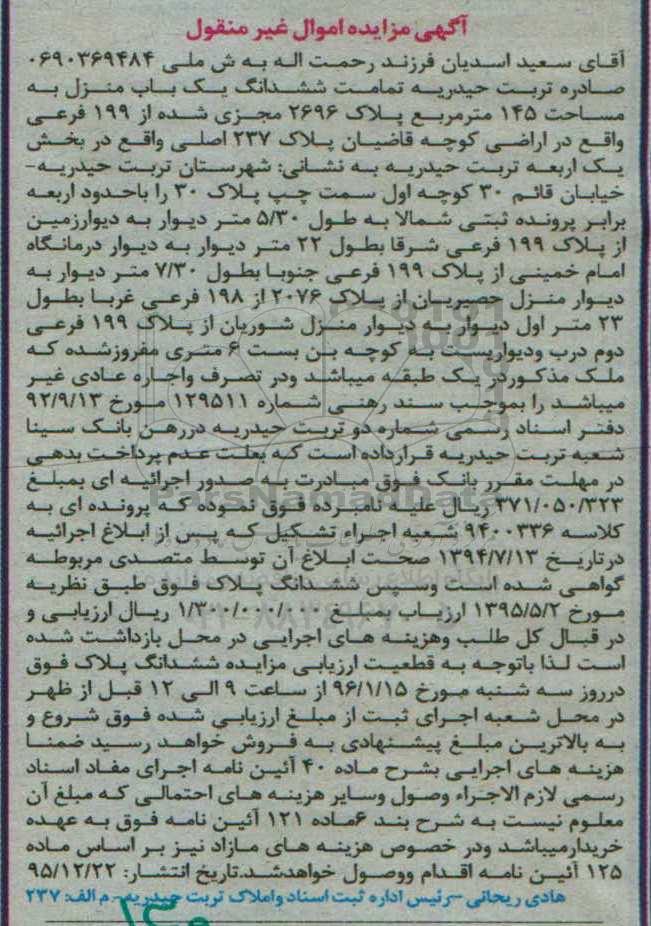 آگهی مزایده اموال غیر منقول
آقای سعید اسدیان فرزند رحمت اله به ش ملی ۰۶۹۰۳۶۹۴۸۴
صادره تربت حیدریه تمامت ششدانگ یک باب منزل به
مساحت ۱۴۵ مترمربع پلاک ۲۶۹۶ مجزی شده از ۱۹۹ فرعی
واقع در اراضی کوچه قاضیان پلاک ۲۳۷ اصلی واقع در بخش
یک اربعه تربت حیدریه به نشانی: شهرستان تربت حیدریه-
خیابان قائم ۳۰ کوچه اول سمت چپ پلاک ۳۰ را باحدود اربعه
برابر پرونده ثبتی شمالا به طول ۵/۳۰ متر دیوار به دیوارزمین
از پلاک ۱۹۹ فرعی شرقا بطول ۲۲ متر دیوار به دیوار درمانگاه
امام خمینی از پلاک ۱۹۹ فرعی جنوبا بطول ۷/۳۰ متر دیوار به
دیوار منزل حصیریان از پلاک ۲۰۷۶ از ۱۹۸ فرعی غربا بطول
۲۳ متر اول دیوار به دیوار منزل شوریان از پلاک ۱۹۹ فرعی
دوم درب ودیواریست به کوچه بن بست ۶ متری مفروزشده که
ملک مذکوردر یک طبقه میباشد ودر تصرف واجاره عادی غیر
میباشد را بموجب سند رهنی شماره ۱۲۹۵۱۱ مورخ ۹۲/۹/۱۳
دفتر اسناد رسمی شماره دو تربت حیدریه دررهن بانک سینا
شعبه تربت حیدریه قرارداده است که بعلت عدم پرداخت بدهی
در مهلت مقرر بانک فوق مبادرت به صدور اجرائیه ای بمبلغ
۳۷۱/۰۵۰/۳۲۳ ریال علیه نامبرده فوق نموده که پرونده ای به
کلاسه ۹۴۰۰۳۳۶ شعبه اجراء تشکیل که پس از ابلاغ اجرائیه
درتاریخ ۱۳۹۴/۷/۱۳ صحت ابلاغ آن توسط متصدی مربوطه
گواهی شده است وسپس ششدانگ پلاک فوق طبق نظریه
مورخ ۱۳۹۵/۵/۲ ارزیاب بمبلغ ۱/۳۰۰/۰۰۰/۰۰۰ ریال ارزیابی و
در قبال کل طلب وهزینه های اجرایی در محل بازداشت شده
است لذا باتوجه به قطعیت ارزیابی مزایده ششدانگ پلاک فوق
درروز سه شنبه مورخ ۹۶/۱/۱۵ از ساعت ۹ الی ۱۲ قبل از ظهر
در محل شعبه اجرای ثبت از مبلغ ارزیابی شده فوق شروع و
به بالاترین مبلغ پیشنهادی به فروش خواهد رسید ضمنا
هزینه های اجرایی بشرح ماده ۴۰ آئین نامه اجرای مفاد اسناد
رسمی لازم الاجراء وصول وسایر هزینه های احتمالی که مبلغ آن
معلوم نیست به شرح بند ۶ماده ۱۲۱ آئین نامه فوق به عهده
خریدارمیباشد ودر خصوص هزینه های مازاد نیز بر اساس ماده
۱۲۵ آئین نامه اقدام ووصول خواهدشد.تاریخ انتشار: ۹۵/۱۲/۲۲
هادی ریحانی -رئیس اداره ثبت اسناد واملاک تربت حیدریه- م الف: ۲۳۷
ParsNamadData